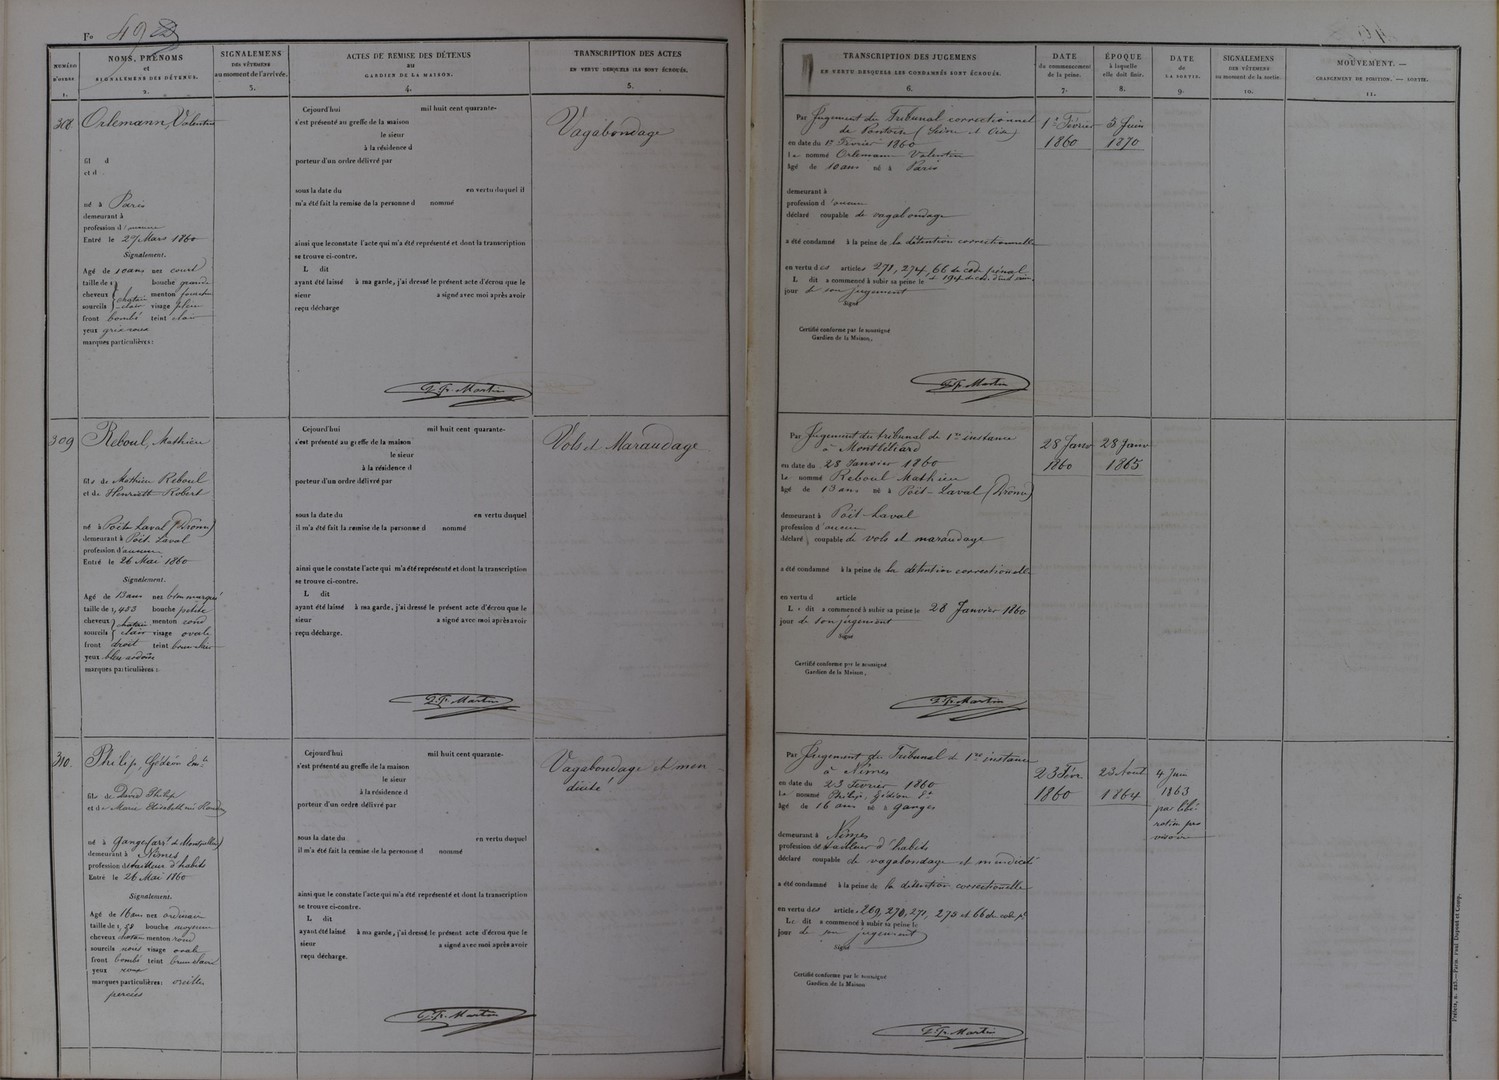 Fo 492
NUMÉRO D'ORDRE
1.
NOMS, PRÉNOMS
et
SIGNALEMENS DES DÉTENUS.
2.
SIGNALEMENS
DES VÊTEMENS
au moment de l'arrivée.
3.
ACTES DE REMISE DES DÉTENUS
AU
GARDIEN DE LA MAISON.
4.
TRANSCRIPTION DES ACTES
EN VERTU DESQUELS ILS SONT ÉCROUÉS.
5.
TRANSCRIPTION DES JUGEMENS
EN VERTU DESQUELS LES CONDAMNÉS SONT ÉCROUÉS.
6.
DATE
du commencement
de la peine.
7.
ÉPOQUE
à laquelle
elle doit finir.
8.
DATE
de
LA SORTIE.
9.
SIGNALEMENS
DES VÊTEMENS
au moment de la sortie.
10.
MOUVEMENT. —
CHANGEMENT DE POSITION. — SORTIE.
11.
308
Orlemann, Valentin
fil d
et d
né à Paris
demeurant à
profession d'aucune
Entré le 27 Mars 1860
Signalement.
Agé de 10 ans nez court
taille de 1, bouche grande
cheveux châtain menton fourchu
sourcils clair visage plein
front bombé teint clair
yeux gris roux
marques particulières :
Cejourd'hui mil huit cent quarante-
s'est présenté au greffe de la maison
le sieur
à la résidence d
porteur d'un ordre délivré par
sous la date du en vertu duquel il
m'a été fait la remise de la personne d nommé
ainsi que le constate l'acte qui m'a été représenté et dont la transcription
se trouve ci-contre.
L dit
ayant été laissé à ma garde, j'ai dressé le présent acte d'écrou que le
sieur a signé avec moi après avoir
reçu décharge
J. Fr. Martin
Vagabondage
Par Jugement du Tribunal correctionnel
de Pontoise (Seine et Oise)
en date du 1er Février 1860
Le nommé Orlemann Valentin
âgé de 10 ans né à Paris
demeurant à
profession d'aucune
déclaré coupable de vagabondage
a été condamné à la peine de la détention correctionnelle
en vertu des articles 271, 274, 66 du code pénal
L dit a commencé à subir sa peine le
jour de son jugement
Signé
Certifié conforme par le soussigné
Gardien de la Maison,
J. Fr. Martin
1er Février
1860
5 Juin
1870
309
Reboul, Mathieu
fils de Mathieu Reboul
et de Henriette Robert
né à Poët Laval (Drôme)
demeurant à Poët Laval
profession d'aucune
Entré le 26 Mai 1860
Signalement.
Agé de 13 ans nez bien marqué
taille de 1,453 bouche petite
cheveux châtain menton rond
sourcils clair visage ovale
front droit teint brun clair
yeux bleu ardoisé
marques particulières :
Cejourd'hui mil huit cent quarante-
s'est présenté au greffe de la maison
le sieur
à la résidence d
porteur d'un ordre délivré par
sous la date du en vertu duquel
il m'a été fait la remise de la personne d nommé
ainsi que le constate l'acte qui m'a été représenté et dont la transcription
se trouve ci-contre.
L dit
ayant été laissé à ma garde, j'ai dressé le présent acte d'écrou que le
sieur a signé avec moi après avoir
reçu décharge.
J. Fr. Martin
Vols et Maraudage
Par Jugement du tribunal de 1re instance
à Montbéliard
en date du 28 Janvier 1860
Le nommé Reboul Mathieu
âgé de 13 ans né à Poët-Laval (Drôme)
demeurant à Poët-Laval
profession d'aucune
déclaré coupable de vols et maraudage
a été condamné à la peine de la détention correctionnelle
en vertu d article
L e dit a commencé à subir sa peine le 28 Janvier 1860
jour de son jugement
Signé
Certifié conforme par le soussigné
Gardien de la Maison,
J. Fr. Martin
28 Janv
1860
28 Janv
1865
310.
Philip, Gédéon Emle
fils de David Philip
et de Marie Elisabeth
né à Ganges (arrt de Montpellier)
demeurant à Nîmes
profession de tailleur d'habits
Entré le 26 Mai 1860
Signalement.
Agé de 16 ans nez ordinaire
taille de 1, 58 bouche moyenne
cheveux chatain menton rond
sourcils noirs visage ovale
front bombé teint brun clair
yeux roux
marques particulières : oreilles
percées
Cejourd'hui mil huit cent quarante-
s'est présenté au greffe de la maison
le sieur
à la résidence d
porteur d'un ordre délivré par
sous la date du en vertu duquel
il m'a été fait la remise de la personne d nommé
ainsi que le constate l'acte qui m'a été représenté et dont la transcription
se trouve ci-contre.
L dit
ayant été laissé à ma garde, j'ai dressé le présent acte d'écrou que le
sieur a signé avec moi après avoir
reçu décharge.
J. Fr. Martin
Vagabondage et men
dicité
Par Jugement du Tribunal de 1re instance
à Nîmes
en date du 23 Février 1860
Le nommé Philip, Gédéon
âgé de 16 ans né à Ganges
demeurant à Nîmes
profession de tailleur d'habits
déclaré coupable de vagabondage et mendicité
a été condamné à la peine de la détention correctionnelle
en vertu des articles 269, 270, 271, 275 et 66 du code pl
Le dit a commencé à subir sa peine le
jour de son jugement
Signé
Certifié conforme par le soussigné
Gardien de la Maison
J. Fr. Martin
23 Févr
1860
23 Aout
1864
4 Juin
1863
par libé-
ration pro
visoire